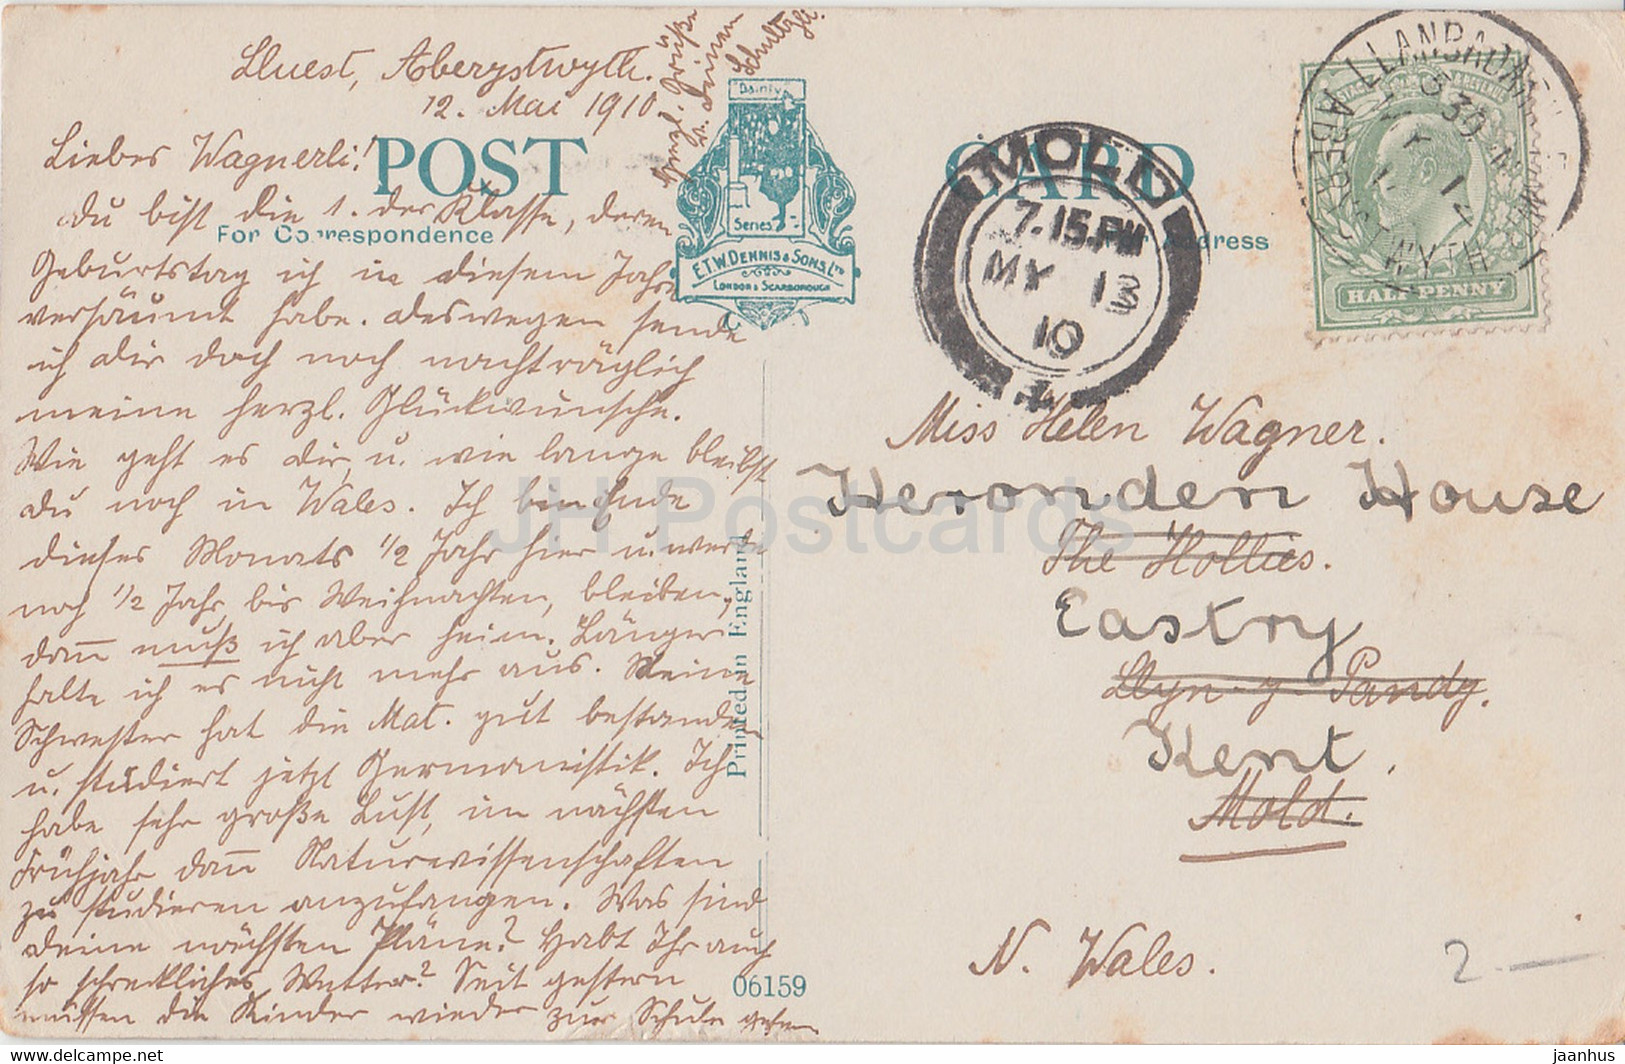 Lluest, Aberystwyth.
12. Mai 1910.
Liebes Wagnerli!
du bist die 1. der Klasse, deren
Geburtstag ich in diesem Jahre
versäumt habe. deswegen sende
ich dir doch noch nachträglich
meine herzl. Glückwünsche.
Wie geht es dir u. wie lange bleibst
du noch in Wales. Ich bin Ende
dieses Monats 1/2 Jahr hier u. werde
noch 1/2 Jahr, bis Weihnachten, bleiben,
dann muß ich aber heim. Länger
halte ich es nicht mehr aus. Meine
Schwester hat die Mat. gut bestanden
u. studiert jetzt Germanistik. Ich
habe sehr große Lust, im nächsten
Frühjahr dann Naturwissenschaften
zu studieren anzufangen. Was sind
deine nächsten Pläne? Habt Ihr auch
so schreckliches Wetter? Seit gestern
müssen die Kinder wieder zur Schule gehen
Grüße
v. deinem
Schultzli.
POST CARD
For Correspondence
Address
Dainty
Series
E.T.W. DENNIS & SONS, LTD
LONDON & SCARBOROUGH
Printed in England
06159
MOLD
7.15.PM
MY 13
10
LLANBADARN
ABERYSTWYTH
HALF PENNY
Miss Helen Wagner.
Heronden House
The Hollies.
Eastry
Llyn-y-Pandy.
Kent.
Mold.
N. Wales.
2 —
JH Postcards
www.delcampe.net
jaanhus